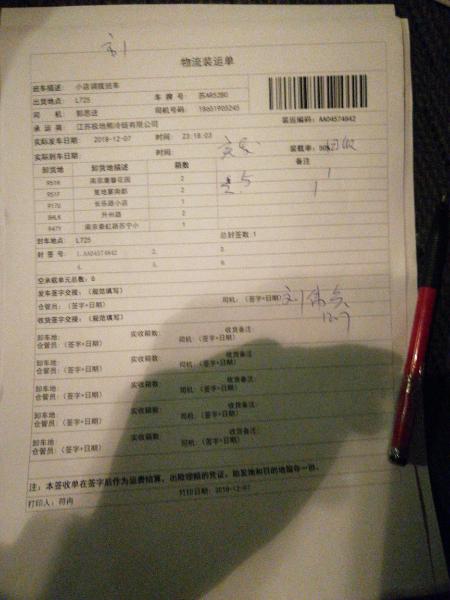 物流装运单
班车描述: 小店调拨班车
出货地点: L725 车 牌 号: 苏AR52B0
司 机: 郭思进 司机号码: 18651965245
承 运 商: 江苏极地熊冷链有限公司 装运编码: AA04574842
实际发车日期: 2018-12-07 时间: 23:18:03
实际到车日期: 时间: 装载率:
卸货地 卸货地描述 箱数 备注
951R 南京馨馨花园 2
951F 2
917U 长乐路小店 1
升州路 2
947Y 南京秦虹路苏宁小 1
封车地点: L725 总封签数: 1
封 签 号: 1.AA04574842 2. 3.
4. 5. 6.
空承载单元总数: 8
发车签字交接: (规范填写)
仓管员: (签字+日期) 司机: (签字+日期) 12.7
收货签字交接: (规范填写)
卸车地: 实收箱数: 收货备注:
仓管员: (签字+日期) 司机: (签字+日期)
卸车地: 实收箱数: 收货备注:
仓管员: (签字+日期) 司机: (签字+日期)
卸车地: 实收箱数: 收货备注:
仓管员: (签字+日期) 司机: (签字+日期)
卸车地: 实收箱数: 收货备注:
仓管员: (签字+日期) 司机: (签字+日期)
卸车地: 实收箱数: 收货备注:
仓管员: (签字+日期) 司机: (签字+日期)
注: 本签收单在签字后作为运费结算、出险理赔的凭证, 始发地和目的地留存一份。
打印人: 符冉 打印日期: 2018-12-07